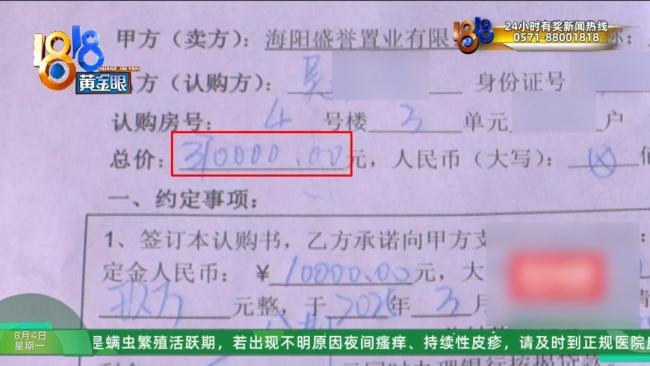 1818
HUANG JIN YAN
黄金眼
24小时有奖新闻热线
0571-88001818
甲方（卖方）：海阳盛誉置业有限
方（认购方）：吴 身份证号
认购房号：4 号楼 3 单元 户
总价：310000.00元，人民币（大写）：
一、约定事项：
1、签订本认购书，乙方承诺向甲方支
定金人民币：￥10000.00元，大
元整，于 年 3 月
8月4日
星期一
是螨虫繁殖活跃期，若出现不明原因夜间瘙痒、持续性皮疹，请及时到正规医院